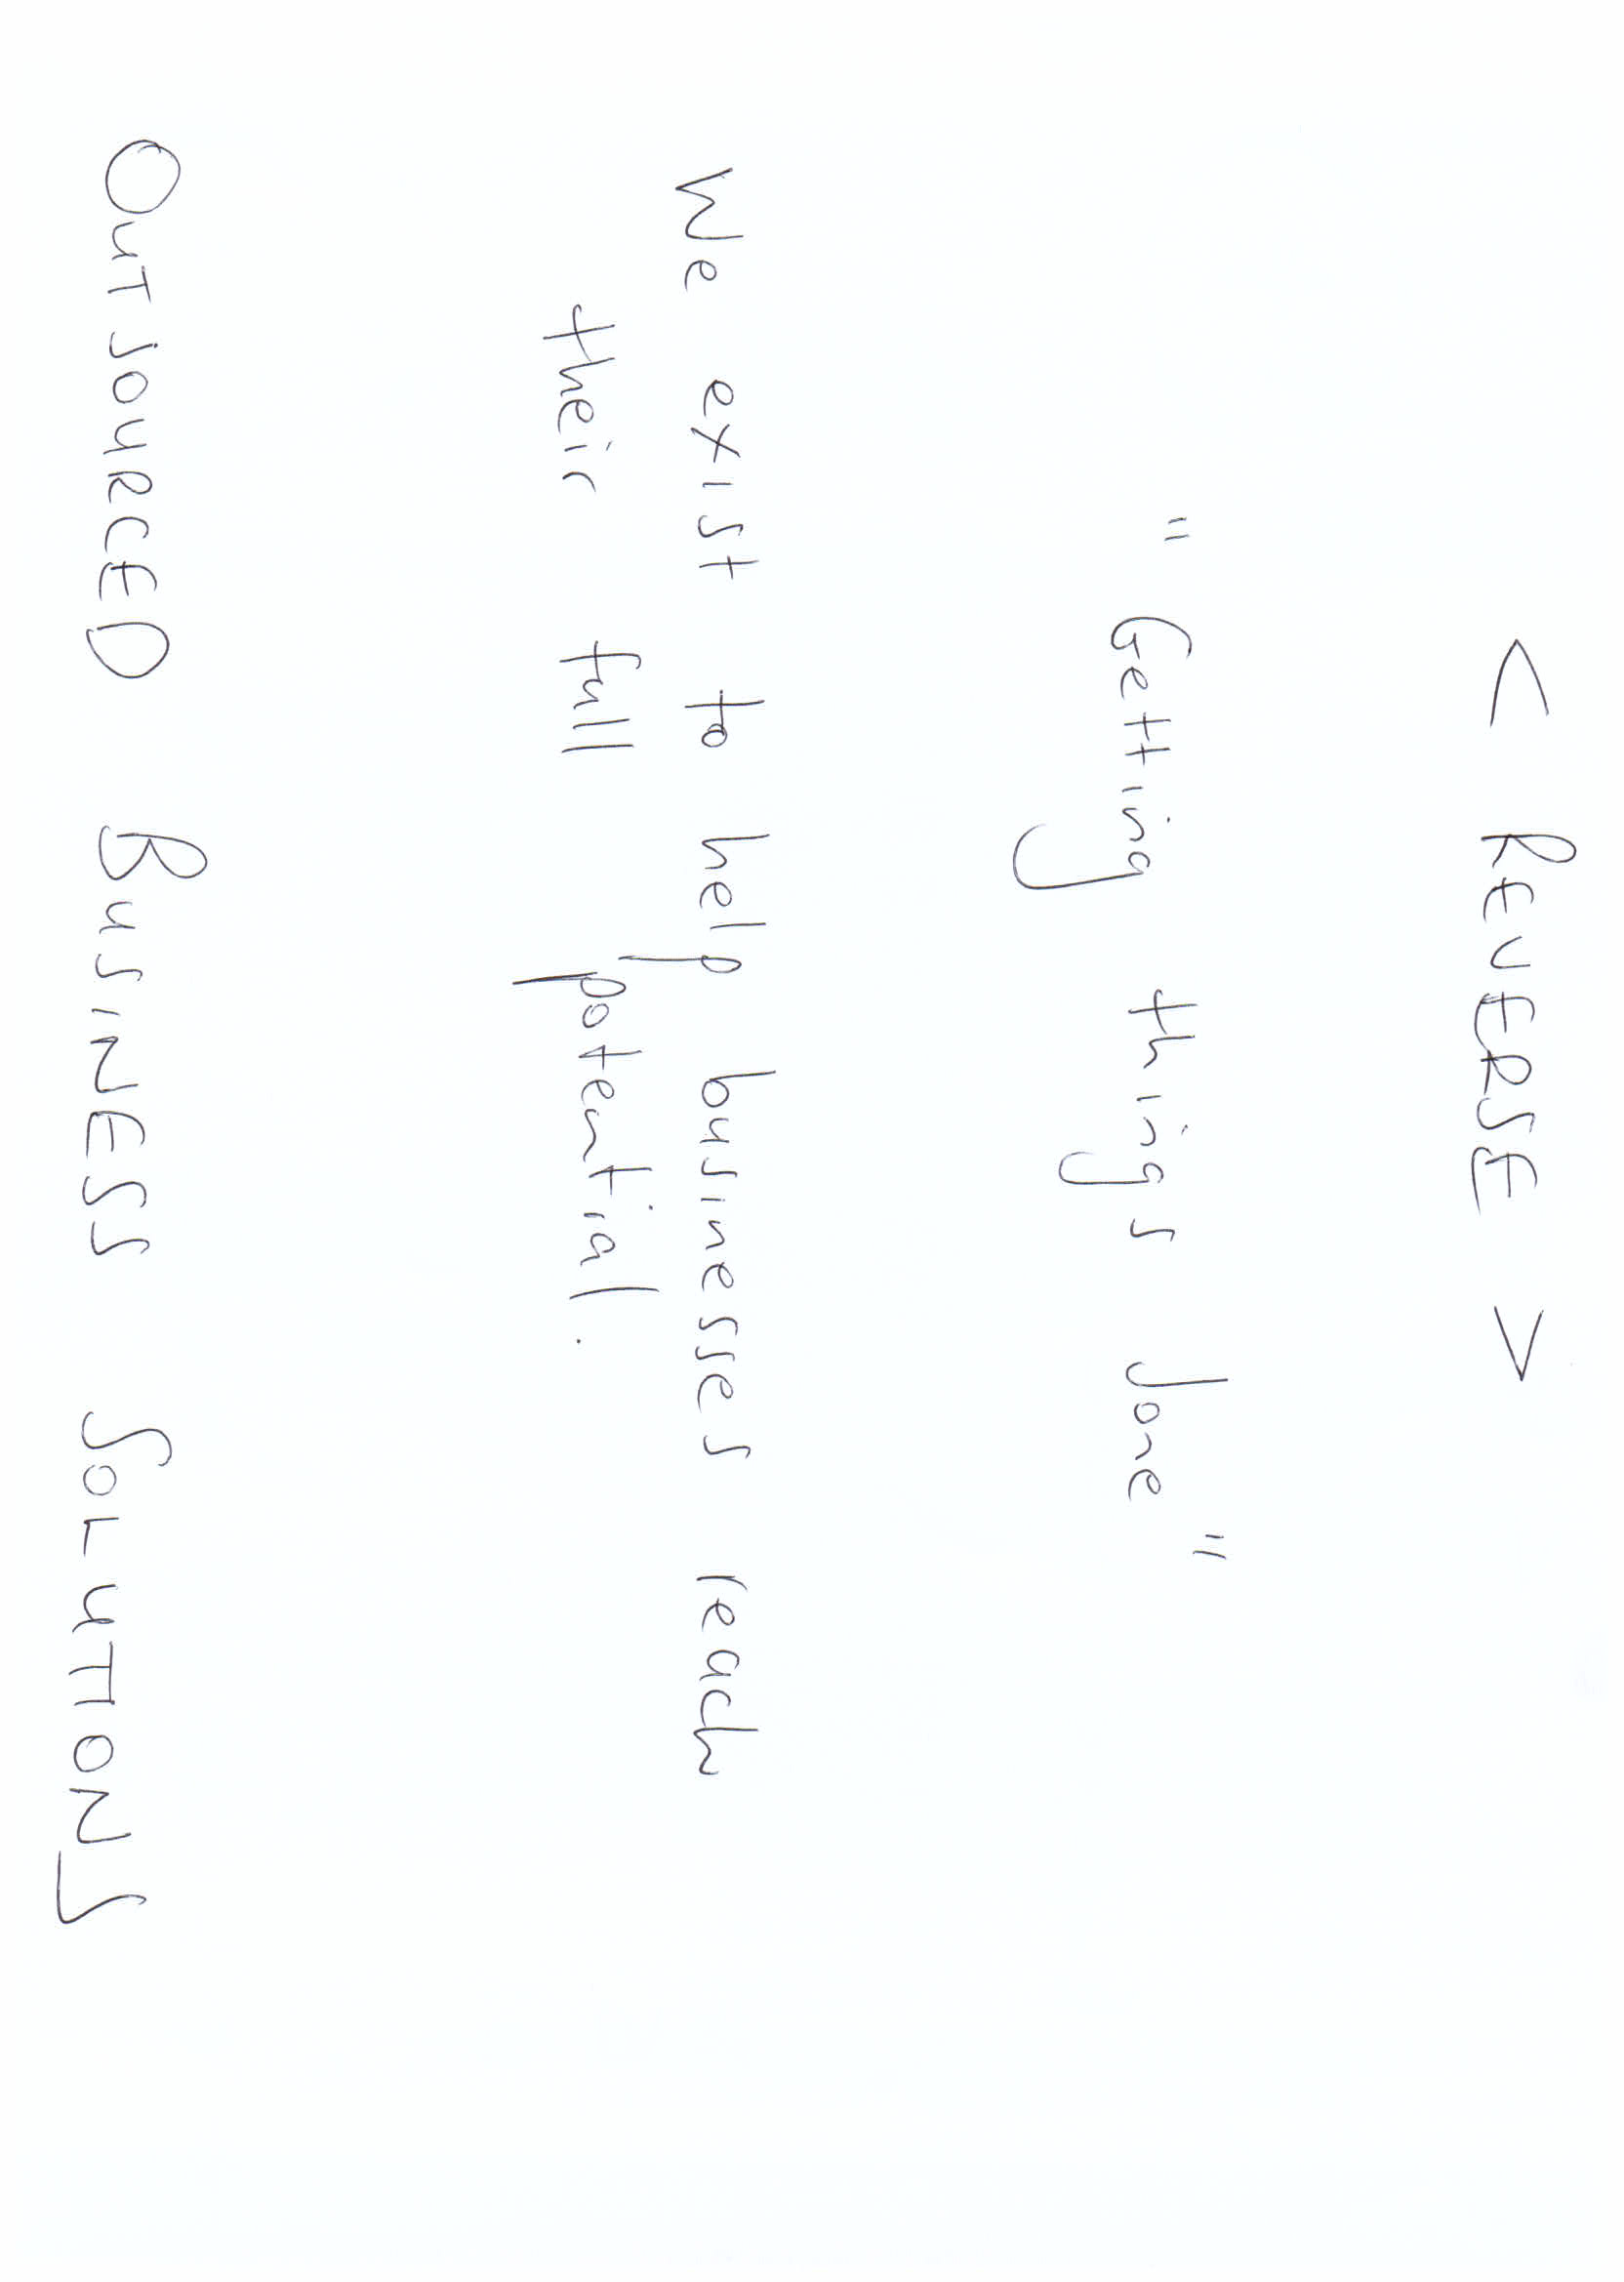 < REVERSE >
"Getting things done"
We exist to help businesses reach
their full potential.
OUTSOURCED BUSINESS SOLUTIONS